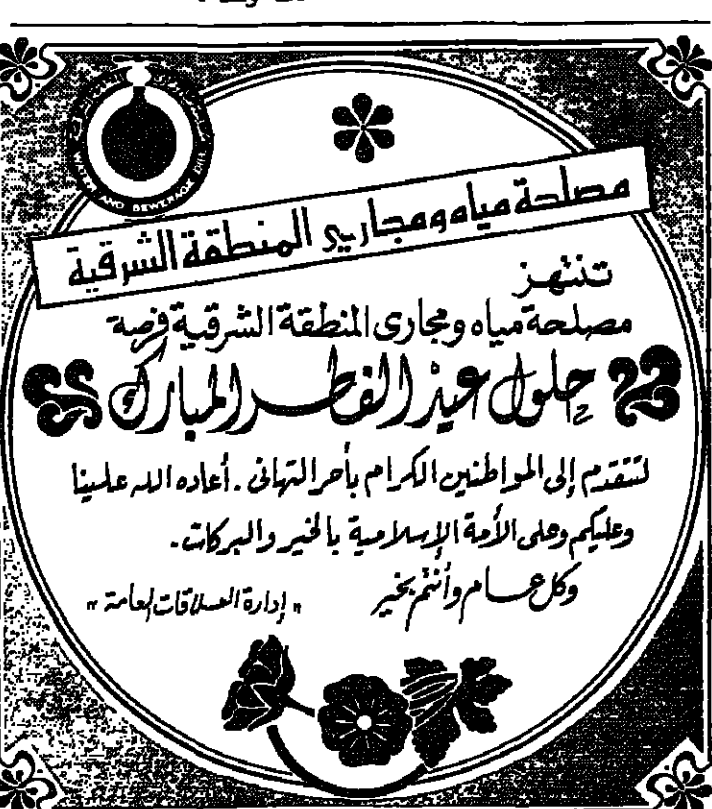 مصلحة مياه ومجاري المنطقة الشرقية
تنتهز
مصلحة مياه ومجارى المنطقة الشرقية فرصة
حلول عيد الفطر المبارك
لتتقدم إلى المواطنين الكرام بأحر التهانى . أعاده الله علينا
وعليكم وعلى الأمة الإسلامية بالخير والبركات .
وكل عام وأنتم بخير
" إدارة العلاقات العامة "
WATER AND SEWERAGE